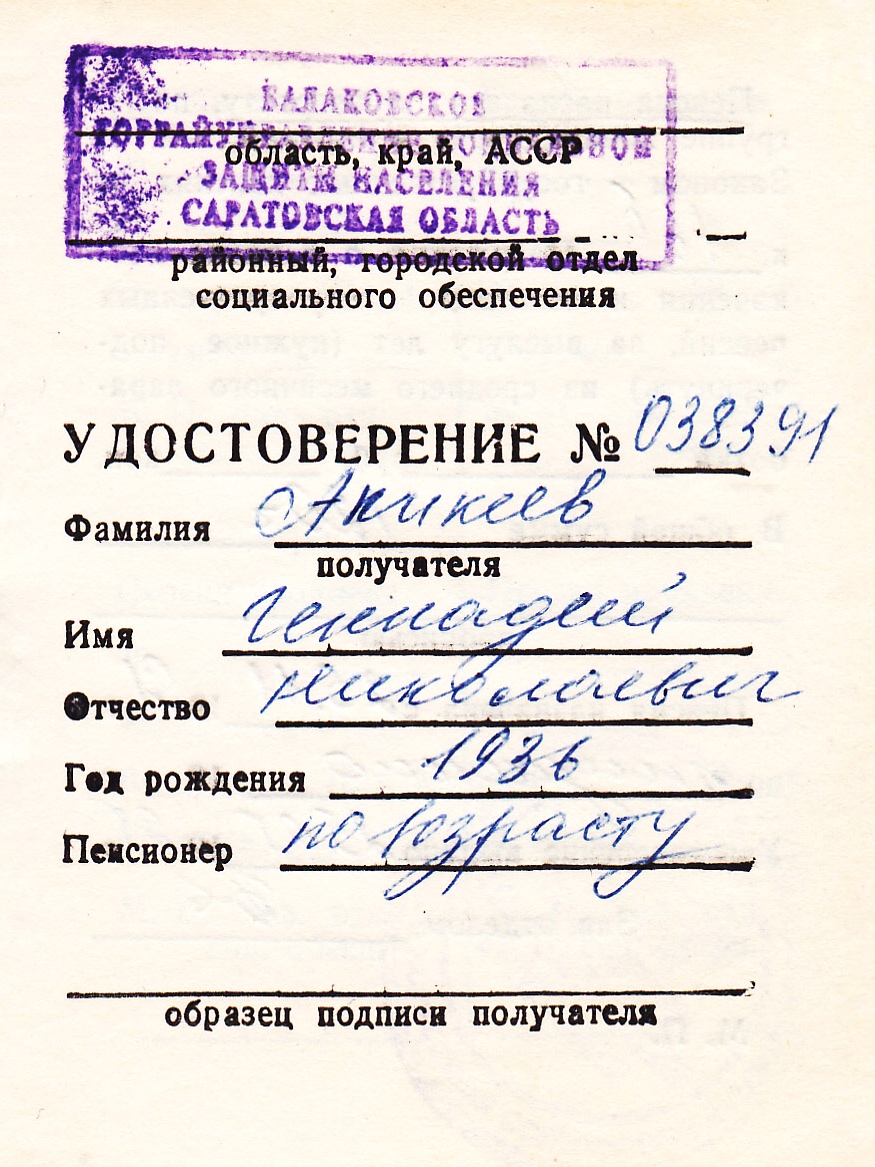 БАЛАКОВСКОЕ
ГОРРАЙУПРАВЛЕНИЕ СОЦИАЛЬНОЙ
область, край, АССР
ЗАЩИТЫ НАСЕЛЕНИЯ
САРАТОВСКАЯ ОБЛАСТЬ
районный, городской отдел
социального обеспечения
УДОСТОВЕРЕНИЕ № 038391
Фамилия Аникеев
получателя
Имя Геннадий
Отчество Николаевич
Год рождения 1936
Пенсионер по возрасту
образец подписи получателя
М. П.